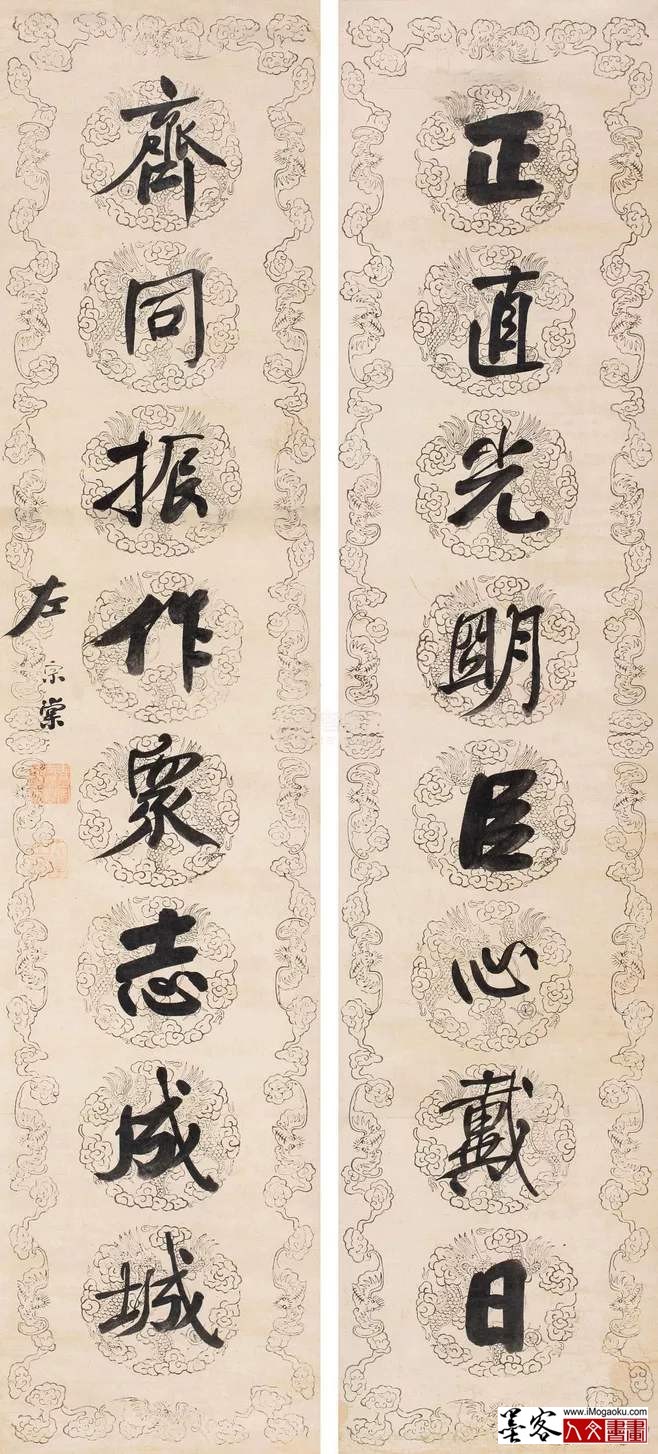 正直光明臣心戴日
齊同振作眾志成城
左宗棠
www.iMogaoku.com
墨客人文書畫